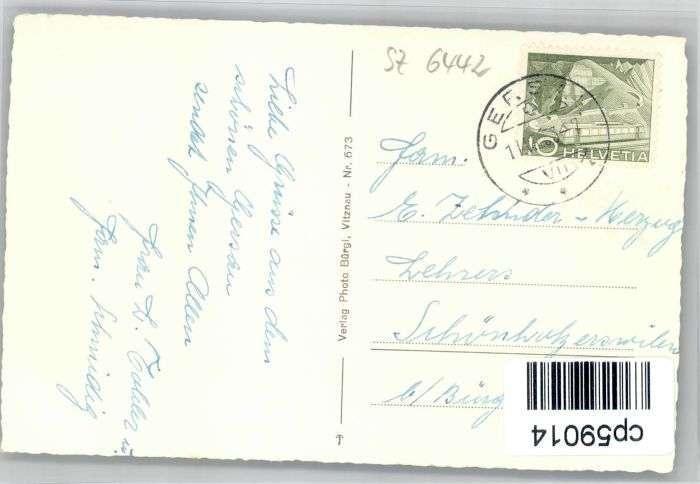 SZ 6442
Liebe Grüsse aus dem
schönen Gersau
sendet Ihnen Allen
Frau L.
Fam. Schmidig
Verlag Photo Bürgi, Vitznau - Nr. 673
GERSAU
VII
10
HELVETIA
Fam.
E. Zehnder-Herzog
Lehrers
Schönholzerswilen
b/Bürg
cp59014